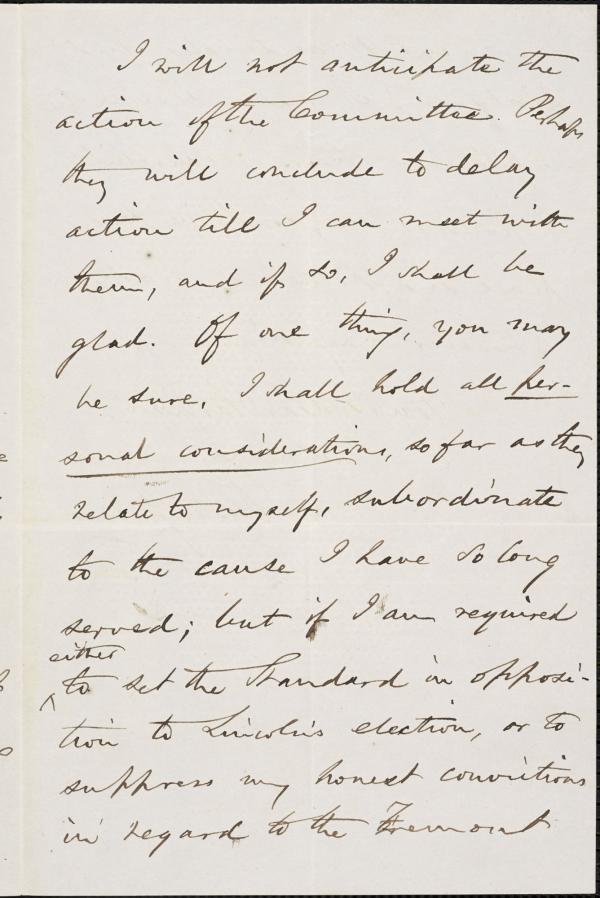 I will not anticipate the
action of the Committee. Perhaps
they will conclude to delay
action till I can meet with
them, and if so, I shall be
glad. Of one thing, you may
be sure, I shall hold all per-
sonal considerations, so far as they
relate to myself, subordinate
to the cause I have so long
served; but if I am required
either
to set the Standard in opposi-
tion to Lincoln's election, or to
suppress my honest convictions
in regard to the Fremont